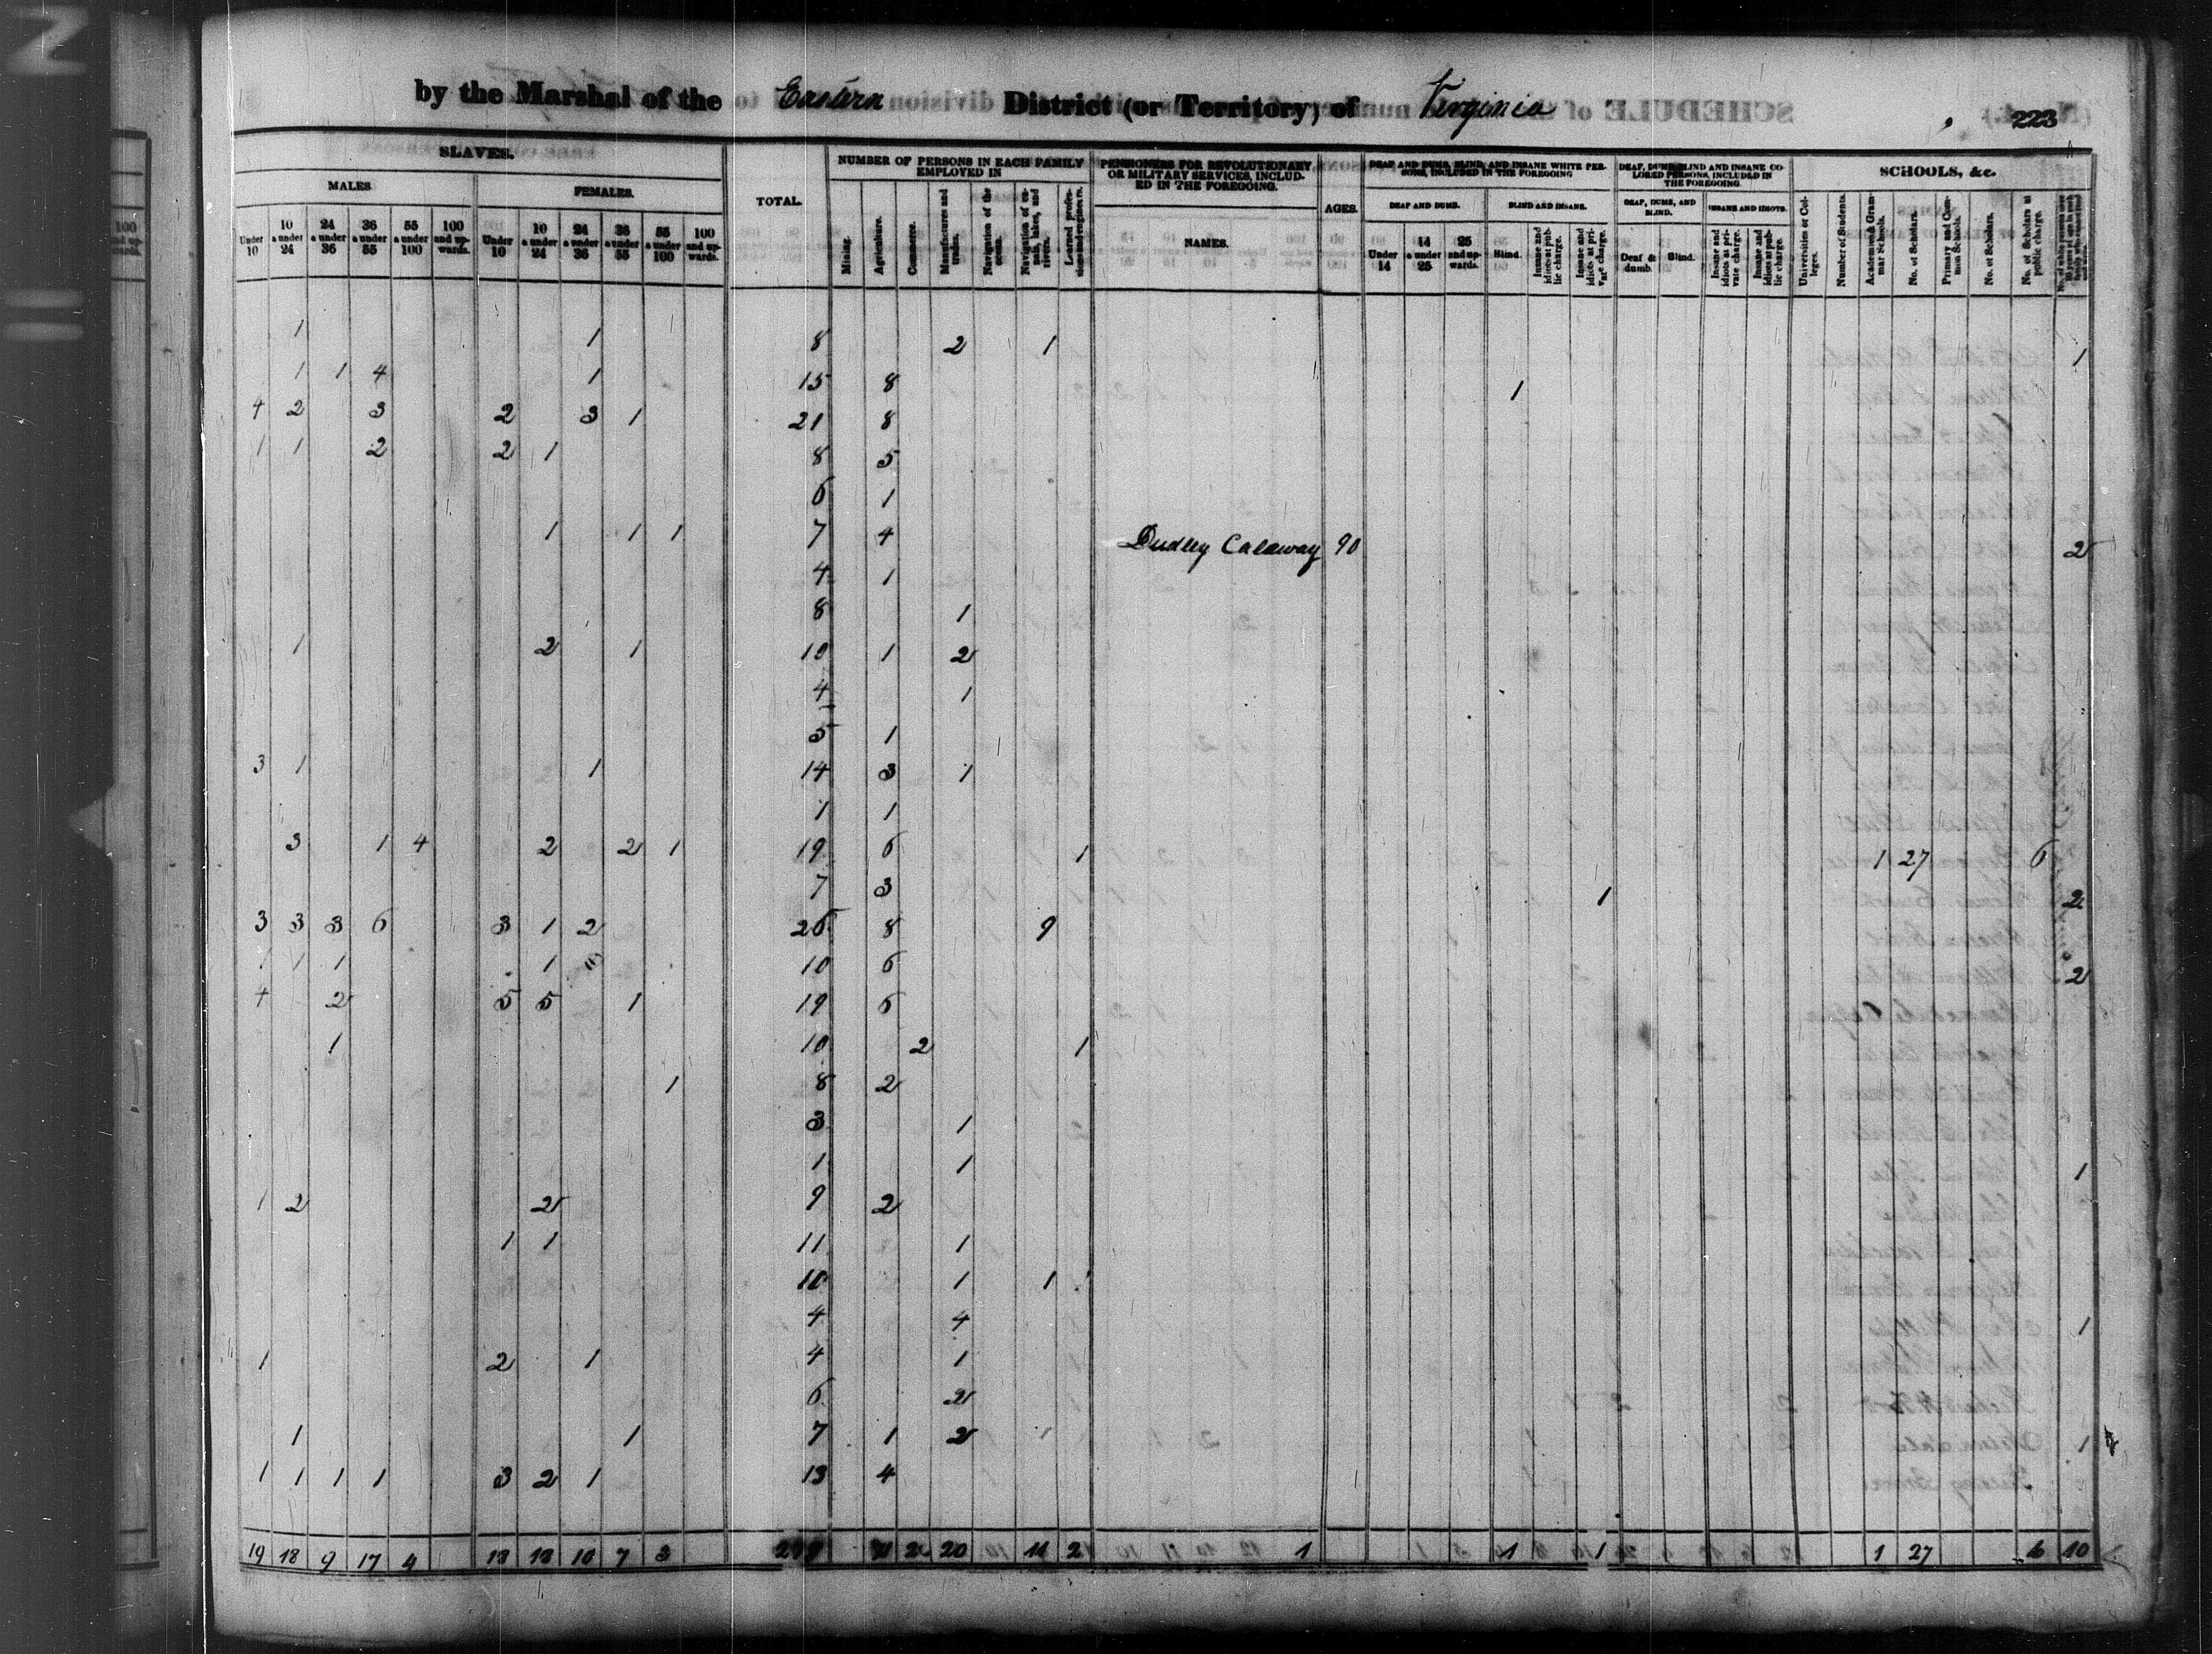 by the Marshal of the Eastern District (or Territory) of Virginia
223
SLAVES.
TOTAL.
NUMBER OF PERSONS IN EACH FAMILY EMPLOYED IN
PENSIONERS FOR REVOLUTIONARY OR MILITARY SERVICES, INCLUDED IN THE FOREGOING.
AGES.
DEAF AND DUMB, BLIND, AND INSANE WHITE PERSONS, INCLUDED IN THE FOREGOING
DEAF, DUMB, BLIND AND INSANE COLORED PERSONS, INCLUDED IN THE FOREGOING
SCHOOLS, &c.
MALES FEMALES.
NAMES.
DEAF AND DUMB. BLIND AND INSANE. DEAF, DUMB, AND BLIND. INSANE AND IDIOTS.
Under 10 10 & under 24 24 & under 36 36 & under 55 55 & under 100 100 and upwards. Under 10 10 & under 24 24 & under 36 36 & under 55 55 & under 100 100 and upwards.
Mining. Agriculture. Commerce. Manufactures and trades. Navigation of the ocean. Navigation of canals, lakes, and rivers. Learned professions and engineers.
Under 14 14 & under 25 25 and upwards. Blind. Insane and idiots at public charge. Insane and idiots at private charge. Deaf & dumb. Blind. Insane and idiots at private charge. Insane and idiots at public charge.
Universities or Colleges. Number of Students. Academies & Grammar Schools. No. of Scholars. Primary and Common Schools. No. of Scholars. No. of Scholars at public charge.
1 1 8 2 1 1
1 1 4 1 15 8 1
4 2 3 2 3 1 21 8
1 1 2 2 1 8 5
6 1
1 1 1 7 4 Dudley Calaway 90 2
4 1
8 1
1 2 1 10 1 2
4 1
5 1
3 1 1 14 3 1
1 1
3 1 4 2 2 1 19 6 1 1 27 6
7 3 1 2
3 3 3 6 3 1 2 26 8 9
1 1 1 1 10 6 2
4 2 5 5 1 19 6
1 10 2 1
1 8 2
3 1
1 1 1
1 2 2 9 2
1 1 11 1
10 1 1
4 4 1
1 2 1 4 1
6 2
1 1 7 1 2 1
1 1 1 1 3 2 1 13 4
19 18 9 17 4 18 18 10 7 3 20 11 2 1 1 1 1 27 6 10